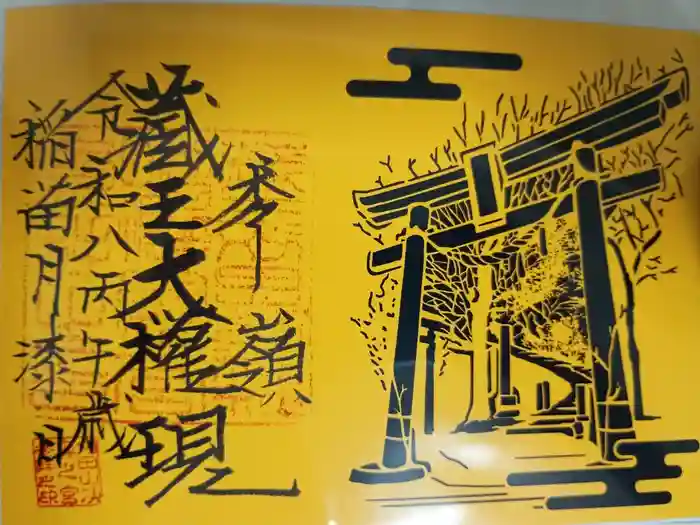 秀嶺
蔵王大権現
令和八丙午歳
稲苗月漆日